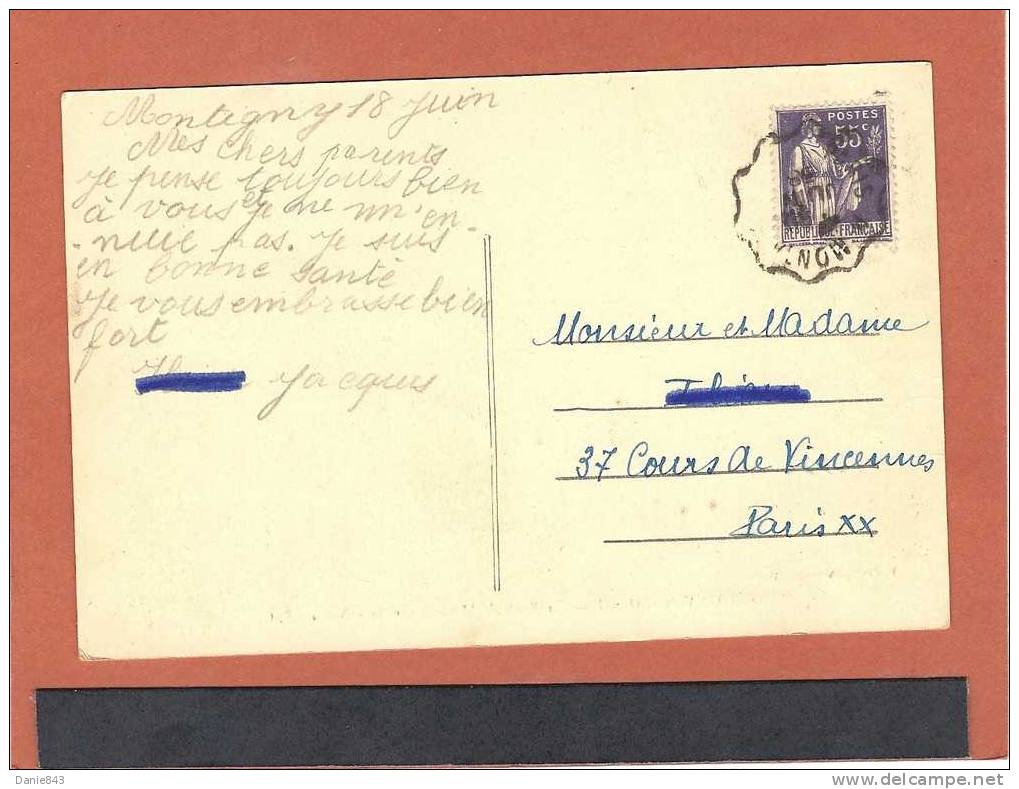 Montigny 18 Juin
Mes chers parents
Je pense toujours bien
à vous et je ne m'en-
-nuie pas. Je suis
en bonne santé
Je vous embrasse bien
fort
Jacques
POSTES
55c
REPUBLIQUE FRANCAISE
MON
Monsieur et Madame
37 Cours de Vincennes
Paris XX
Danie843
www.delcampe.net